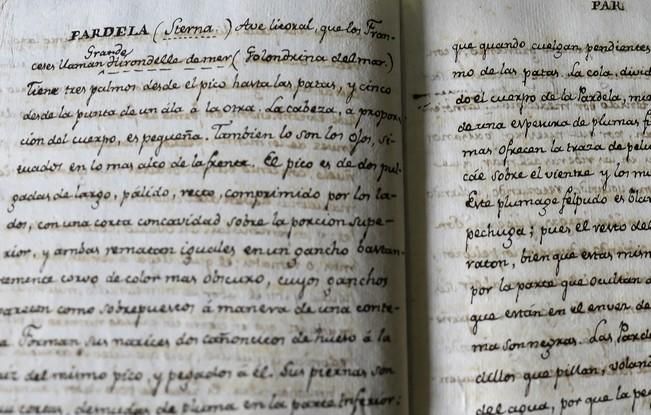 PARDELA (Sterna.) Ave litoral, que los Fran-
Grande
ceses llaman hirondelle de mer (Golondrina del mar.)
Tiene tres palmos desde el pico hasta las patas, y cinco
desde la punta de un ála à la otra. La cabeza, à propor-
cion del cuerpo, es pequeña. Tambien lo son los ojos, si-
tuados en lo mas alto de la frente. El pico es de dos pul-
gadas de largo, pálido, recto, comprimido por los la-
dos, con una corta concavidad sobre la porcion supe-
rior, y ambas rematan iguales en un gancho bastan-
temente corvo de color mas obscuro, cuyos ganchos
parecen como sobrepuestos à manera de una
Forman sus narices dos cañoncitos de hueso á la
raiz del mismo pico, y pegados á él. Sus piernas son
cortas, desnudas de pluma en la parte inferior;
PAR.
que quando cuelgan, pendientes
mo de las patas. La cola, divid
do el cuerpo de la Pardela, mie
de una espesura de plumas f
mas ofrecen la traza de pelu
cáe sobre el vientre y los mu
Este plumage felpudo es blan
pechuga; pues el resto del
raton, bien que estas mism
por la parte que ocultan
que están en el enves de
ma son negras. Las Parde
cillos que pillan, volan
del agua, por que la pe